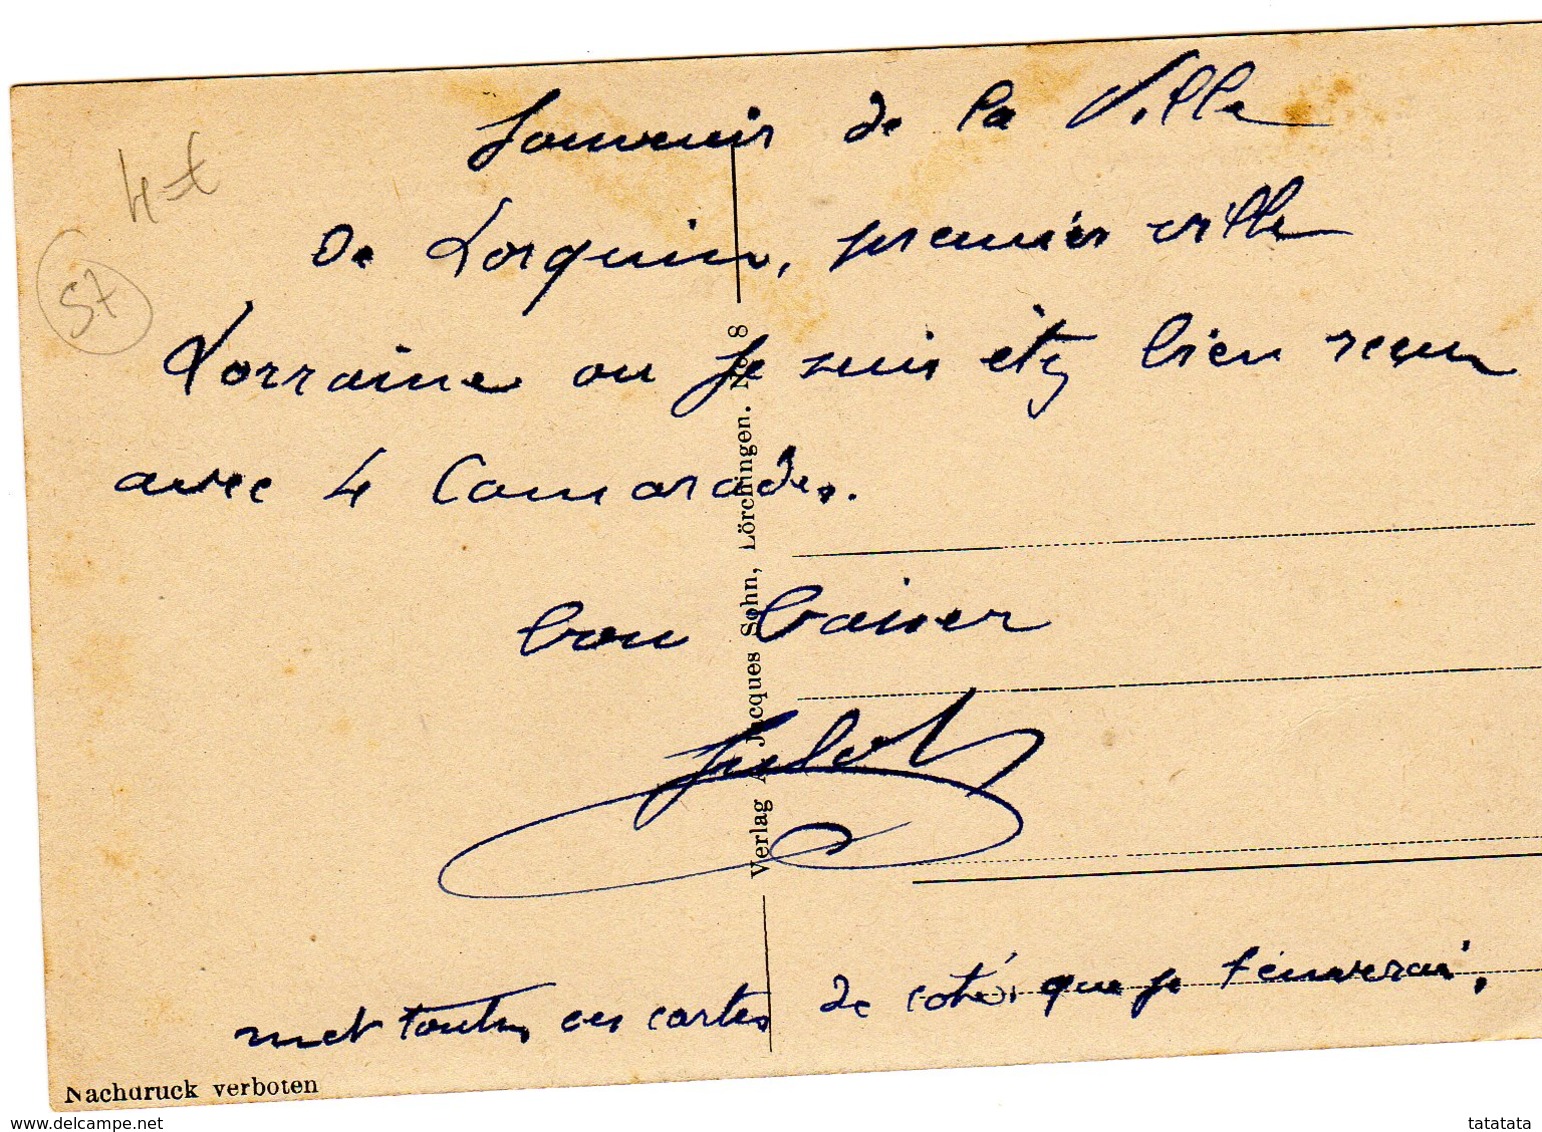 Souvenir de la Ville
De Lorquin, premier ville
Lorraine ou Je suis été bien reçu
avec 4 Camarades.
bon baiser
Julot
met toutes ces cartes de coté. que je t'enverai.
4 €
57
Verlag A. Jacques Sohn, Lörchingen. No. 8
Nachdruck verboten
www.delcampe.net
tatatata